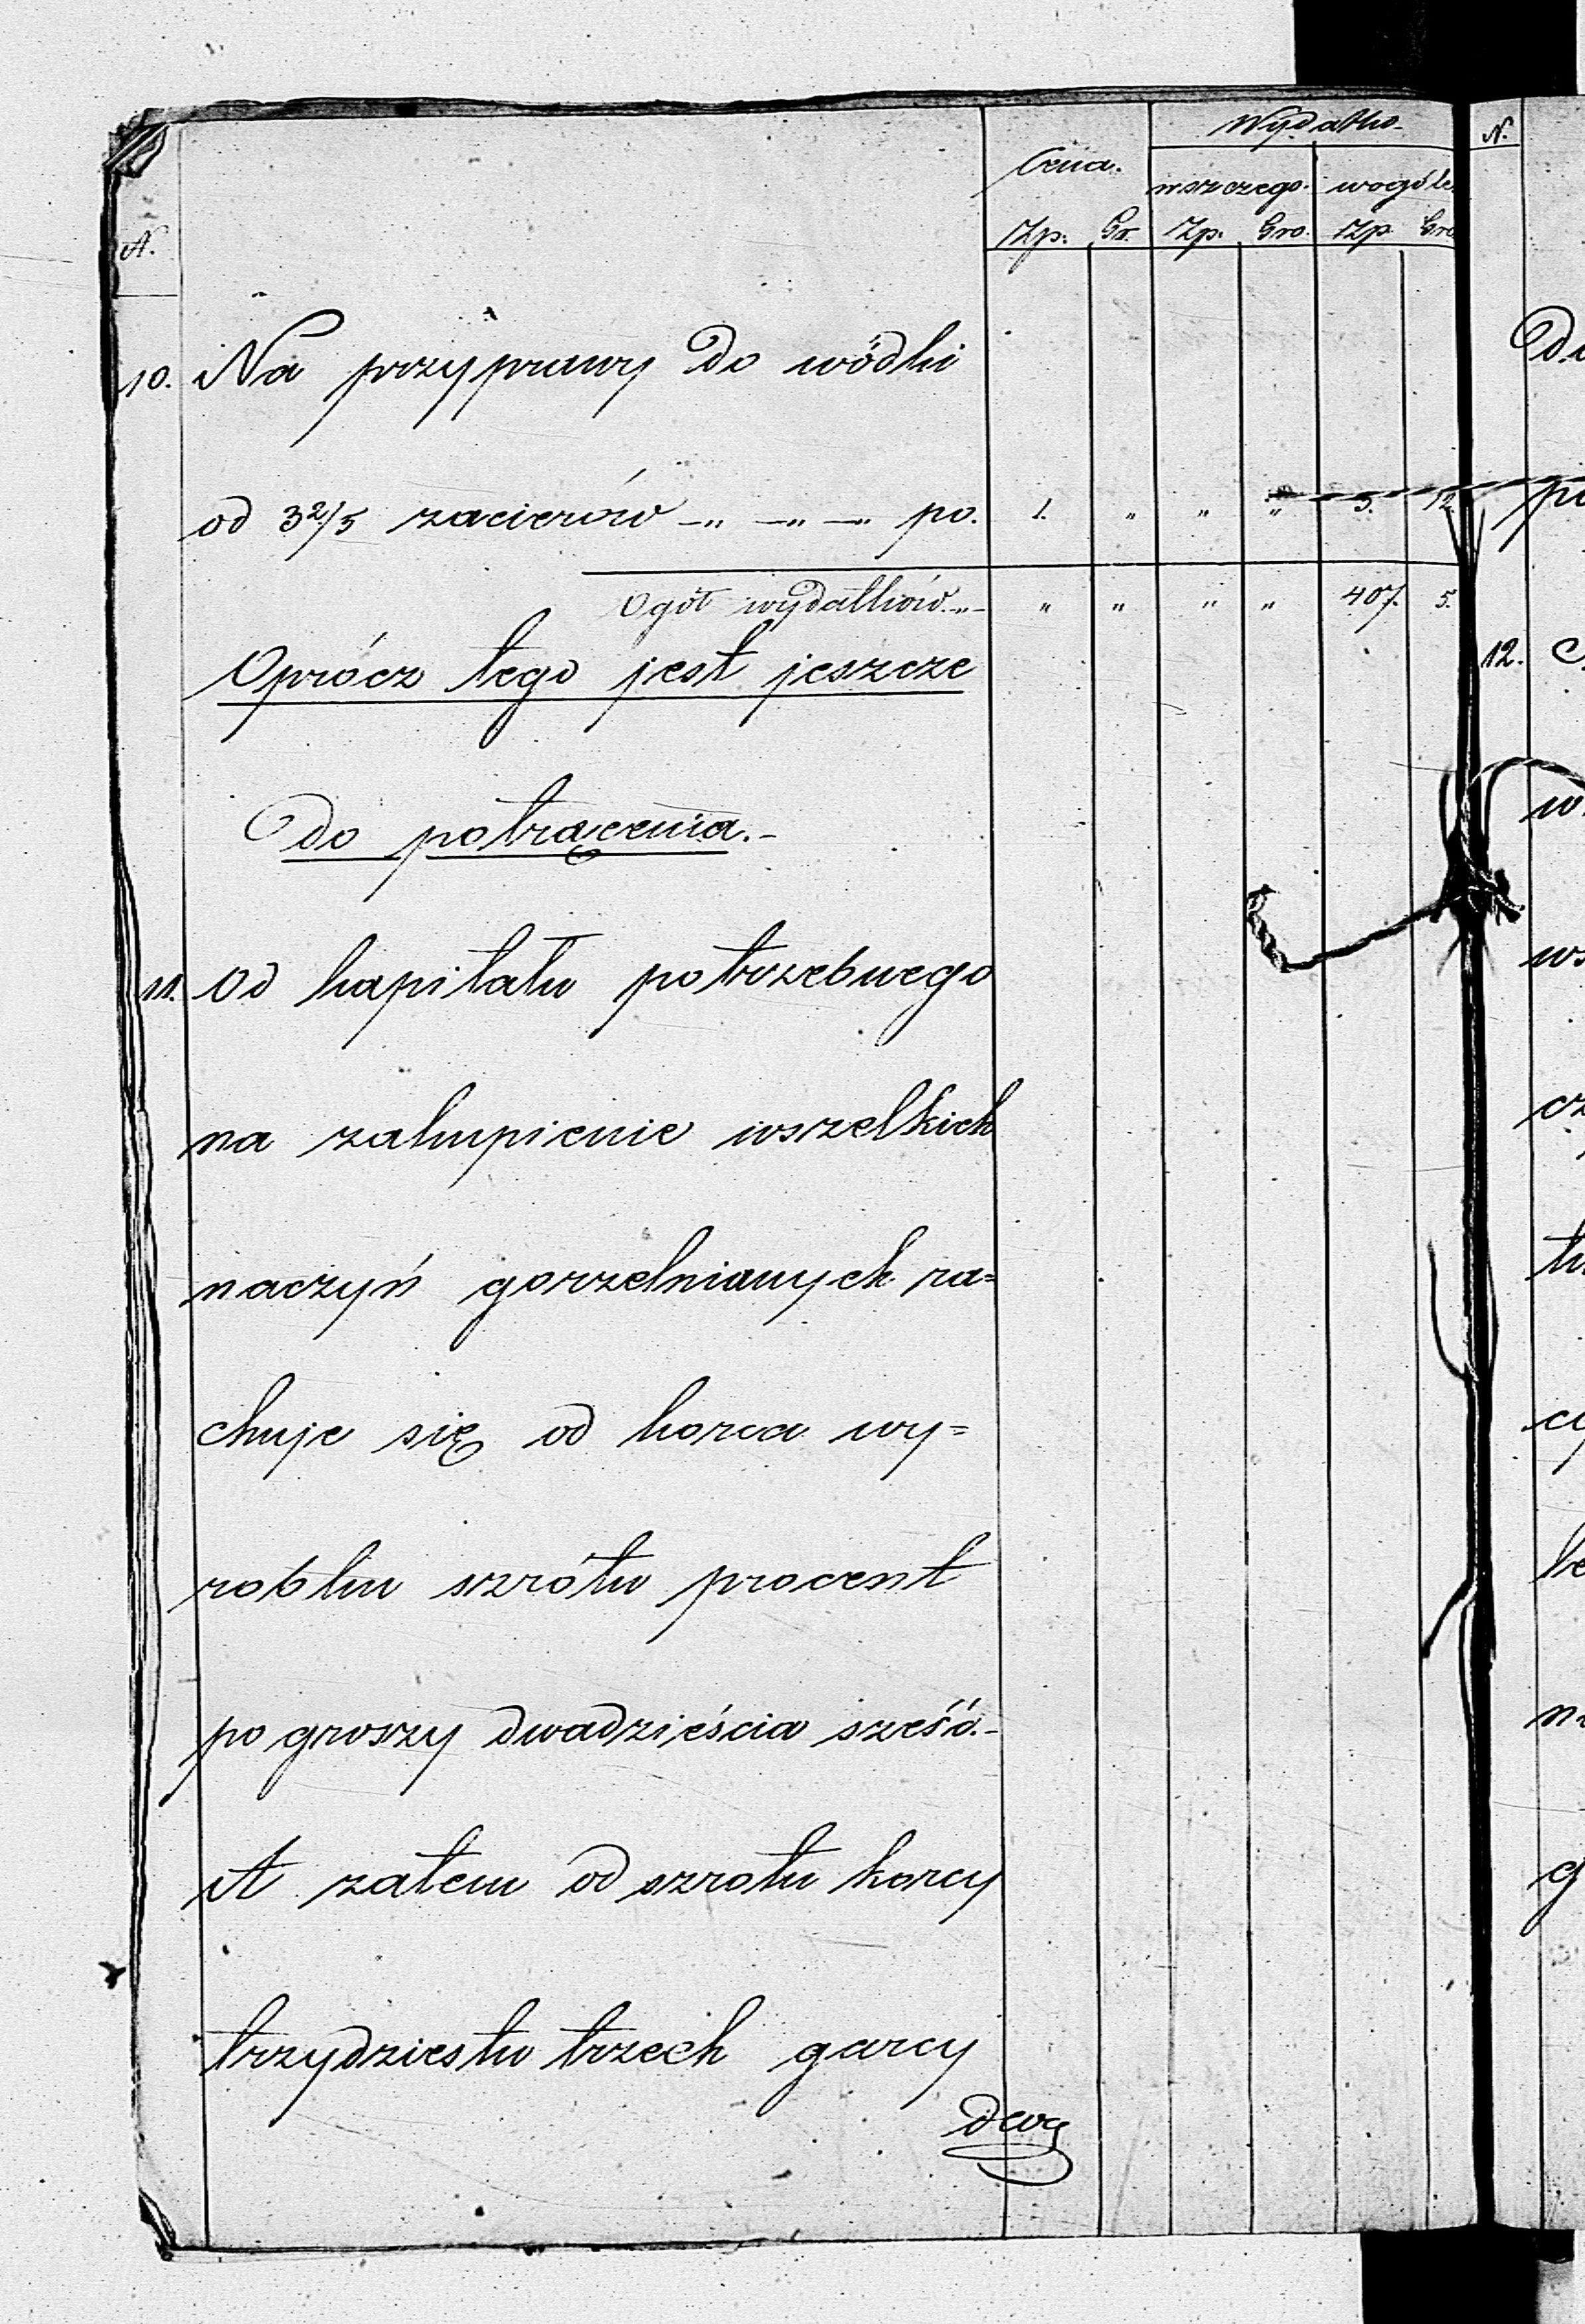 Wydatko.
Cena. wszczego. wogóle.
N. Zp. Gr. Zp. Gro. Zp. Gro
10. Na przyprawy do wódki
od 3 2/5 zacierów —„ —„ —„ po. 1. „ „ „ 3. 12.
Ogół wydatków.„— „ „ „ „ 407. 5.
Oprócz tego jest jeszcze
do potrącenia.-
11. Od kapitału potrzebnego
na zakupienie wszelkich
naczyń gorzelnianych ra=
chuje się od korca wy=
robku szrótu procent
po groszy dwadzieścia sześć.-
A zatem od szrotu korcy
trzydziestu trzech garcy
N.
12.